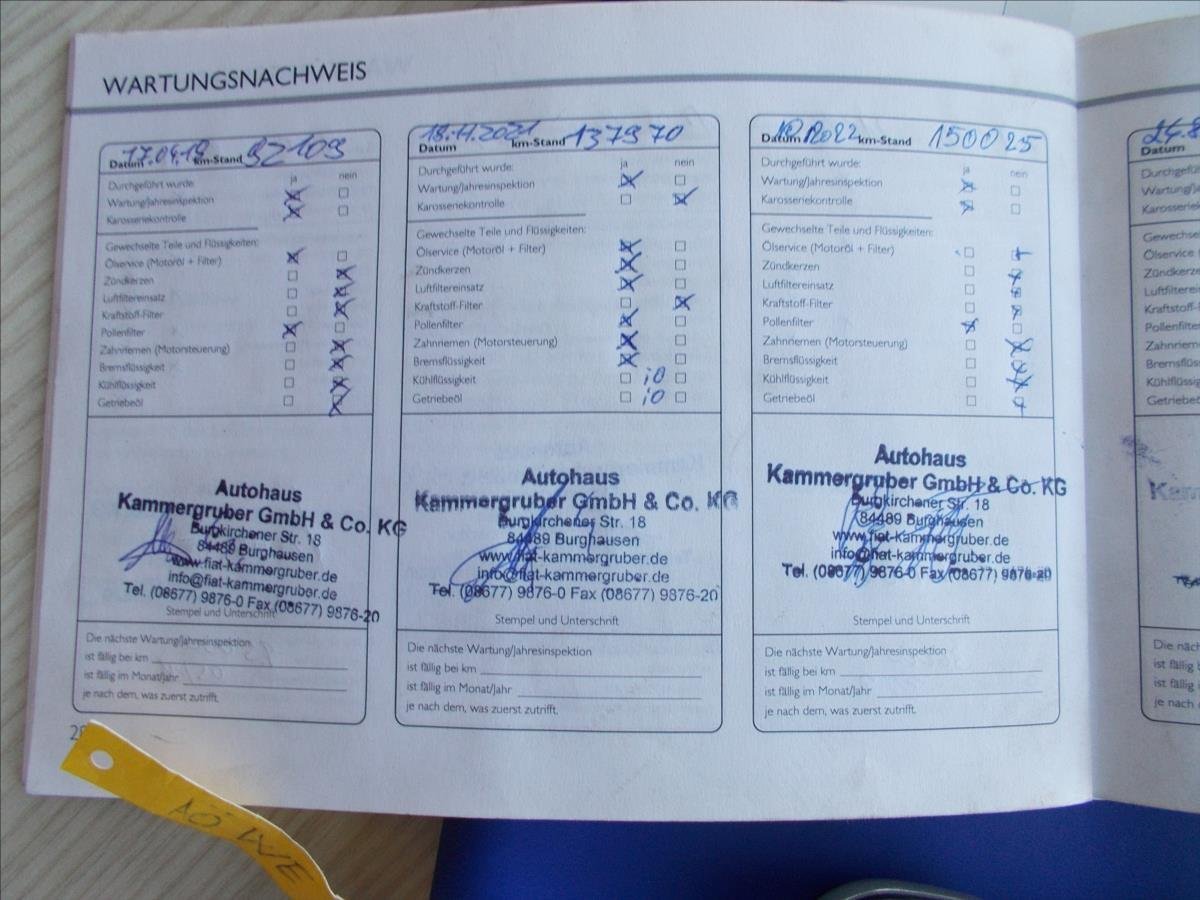 WARTUNGSNACHWEIS
17.04.19 92109
Datum km-Stand
Durchgeführt wurde: ja nein
Wartung/Jahresinspektion
Karosseriekontrolle
Gewechselte Teile und Flüssigkeiten:
Ölservice (Motoröl + Filter)
Zündkerzen
Luftfiltereinsatz
Kraftstoff-Filter
Pollenfilter
Zahnriemen (Motorsteuerung)
Bremsflüssigkeit
Kühlflüssigkeit
Getriebeöl
Autohaus
Kammergruber GmbH & Co. KG
Burgkirchener Str. 18
84489 Burghausen
www.fiat-kammergruber.de
info@fiat-kammergruber.de
Tel. (08677) 9876-0 Fax (08677) 9876-20
Stempel und Unterschrift
Die nächste Wartung/Jahresinspektion
ist fällig bei km
ist fällig im Monat/Jahr
je nach dem, was zuerst zutrifft.
18.11.2021 137970
Datum km-Stand
Durchgeführt wurde: ja nein
Wartung/Jahresinspektion
Karosseriekontrolle
Gewechselte Teile und Flüssigkeiten:
Ölservice (Motoröl + Filter)
Zündkerzen
Luftfiltereinsatz
Kraftstoff-Filter
Pollenfilter
Zahnriemen (Motorsteuerung)
Bremsflüssigkeit
Kühlflüssigkeit iO
Getriebeöl iO
Autohaus
Kammergruber GmbH & Co. KG
Burgkirchener Str. 18
84489 Burghausen
www.fiat-kammergruber.de
info@fiat-kammergruber.de
Tel. (08677) 9876-0 Fax (08677) 9876-20
Stempel und Unterschrift
Die nächste Wartung/Jahresinspektion
ist fällig bei km
ist fällig im Monat/Jahr
je nach dem, was zuerst zutrifft.
150025
Datum km-Stand
Durchgeführt wurde: ja nein
Wartung/Jahresinspektion
Karosseriekontrolle
Gewechselte Teile und Flüssigkeiten:
Ölservice (Motoröl + Filter)
Zündkerzen
Luftfiltereinsatz
Kraftstoff-Filter
Pollenfilter
Zahnriemen (Motorsteuerung)
Bremsflüssigkeit
Kühlflüssigkeit
Getriebeöl
Autohaus
Kammergruber GmbH & Co. KG
Burgkirchener Str. 18
84489 Burghausen
www.fiat-kammergruber.de
info@fiat-kammergruber.de
Tel. (08677) 9876-0 Fax (08677) 9876-20
Stempel und Unterschrift
Die nächste Wartung/Jahresinspektion
ist fällig bei km
ist fällig im Monat/Jahr
je nach dem, was zuerst zutrifft.
Datum
Zündkerzen
Kraftstoff-Filter
Pollenfilter
Getriebeöl
ist fällig
ist fällig
je nach
AÖ WE